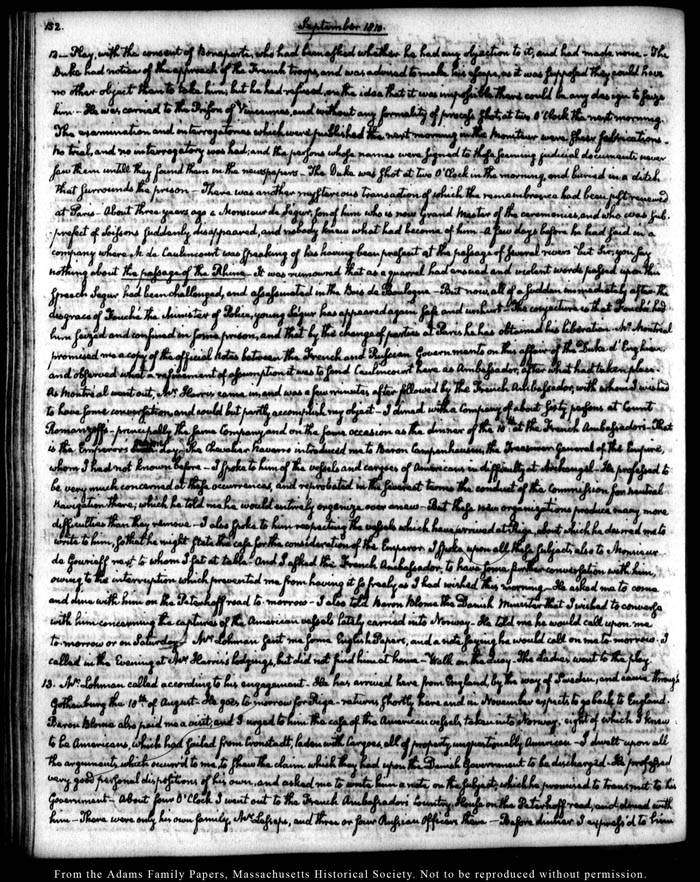 132. September 1810.
12.— Play, with the consent of Bonaparte, who had been asked whether he had any objection to it, and had made none— The
Duke had notice of the approach of the French troops, and was advised to make his escape, as it was supposed they could have
no other object than to take him; but he had refused, on the idea that it was impossible there could be any design to seize
him— He was carried to the Prison of Vincennes, and without any formality of process shot, at two O'Clock the next morning.
The examination and interrogatories which were published the next morning in the Moniteur were sheer fabrications.
No trial, and no interrogatory was had; and the persons whose names were signed to those seeming judicial documents never
saw them untill they found them in the newspapers— The Duke was shot at two O'Clock in the morning, and buried in a ditch
that surrounds the prison— There was another mysterious transaction of which the remembrance had been just renewed
at Paris— About three years ago a Monsieur de Ségur, son of him who is now Grand Master of the ceremonies, and who was Sub-
prefect of Soissons suddenly disappeared, and nobody knew what had become of him— A few days before he had said in a
company where M. de Caulincourt was speaking of his having been present at the passage of several rivers "but Sir; you say
nothing about the passage of the Rhine— It was rumoured that as a quarrel had ensued and violent words passed upon this
speech Segur had been challenged, and assassinated in the Bois de Boulogne— But now, all of a sudden immediately after the
disgrace of Fouché the Minister of Police, young Ségur has appeared again safe and unhurt— The conjecture is that Fouché had
him seized and confined in some prison, and that by the change of parties at Paris he has obtained his liberation. Mr. Montréal
promised me a copy of the official Notes between the French and Russian Governments on this affair of the Duke d'Enghien
and observed what a refinement of assumption it was to send Caulincourt here as Ambassador, after what had taken place.
As Montréal went out, Mr. Harris came in, and was a few minutes after followed by the French Ambassador, with whom I wished
to have some conversation, and could but partly accomplish my object— I dined with a Company of about sixty persons at Count
Romanzoff's— principally the same Company, and on the same occasion as the dinner of the 10th at the French Ambassador's— That
is the Emperor's day— The Chevalier Navarro introduced me to Baron Campenhausen, the Treasurer General of the Empire,
whom I had not known before— I spoke to him of the vessels and cargoes of Americans in difficulty at Archangel— He professed to
be very much concerned at these occurrences, and reprobated in the severest terms the conduct of the Commission for neutral
Navigation there; which he told me he would entirely organize over anew— But these new organizations produce many more
difficulties than they remove— I also spoke to him respecting the vessels which have arrived at Riga, about which he desired me to
write to him, so that he might state the case for the consideration of the Emperor. I spoke upon all these subjects also to Monsieur
de Gourieff next to whom I sat at table— And I asked the French Ambassador, to have some further conversation with him,
owing to the interruption which prevented me from having it so freely as I had wished this morning— He asked me to come
and dine with him on the Peterhoff road to-morrow— I also told Baron Blome the Danish Minister that I wished to converse
with him concerning the captures of the American vessels lately carried into Norway— He told me he would call upon me
to-morrow or on Saturday— Mr. Lohman sent me some English Papers, and a note saying he would call on me to-morrow. I
called in the Evening at Mr. Harris's lodgings, but did not find him at home— Walk on the Quay— The ladies went to the play.
13. Mr. Lohman called according to his engagement— He has arrived here from England, by the way of Sweden, and came through
Gothenburg the 10th of August— He goes to-morrow for Riga— returns shortly here and in November expects to go back to England.
Baron Blome also paid me a visit; and I urged to him the case of the American vessels, taken into Norway, eight of which I knew
to be Americans, which had sailed from Cronstadt, laden with cargoes all of property unquestionably American— I dwelt upon all
the arguments which occurred to me, to shew the claim which they had upon the Danish Government to be discharged— He professed
very good personal dispositions of his own, and asked me to write him a note on the subject, which he promised to transmit to his
Government— About four O'Clock I went out to the French Ambassador's Country House on the Peterhoff road, and dined with
him— There were only his own family, Mr. Lesseps, and three or four Russian Officers there— Before dinner I express'd to him
From the Adams Family Papers, Massachusetts Historical Society. Not to be reproduced without permission.